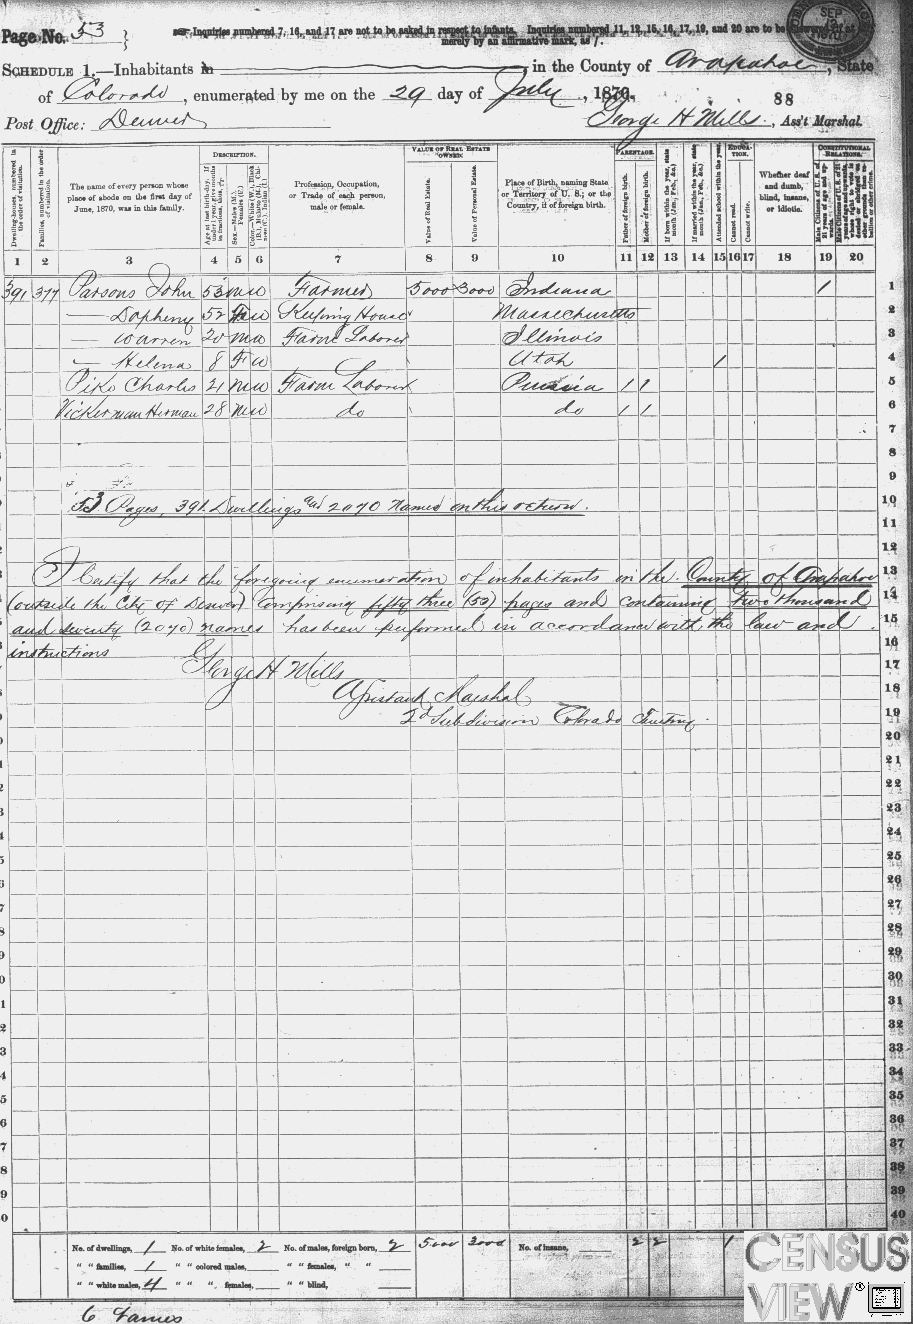 Page No. 53
Inquiries numbered 7, 16, and 17 are not to be asked in respect to infants. Inquiries numbered 11, 12, 15, 16, 17, 19, and 20 are to be answered if at all
merely by an affirmative mark, as /.
SCHEDULE 1.—Inhabitants in , in the County of Arapahoe, State
of Colorado, enumerated by me on the 29 day of July, 1870.
88
Post Office: Denver George H Mills, Ass't Marshal.
Dwelling-houses, numbered in the order of visitation.
Families, numbered in the order of visitation.
The name of every person whose place of abode on the first day of June, 1870, was in this family.
DESCRIPTION.
Age at last birth-day. If under 1 year, give months in fractions, thus, 3/12
Sex.—Males (M.), Females (F.)
Color.—White (W.), Black (B.), Mulatto (M.), Chinese (C.), Indian (I.)
Profession, Occupation, or Trade of each person, male or female.
VALUE OF REAL ESTATE OWNED.
Value of Real Estate.
Value of Personal Estate.
Place of Birth, naming State or Territory of U. S.; or the Country, if of foreign birth.
PARENTAGE.
Father of foreign birth.
Mother of foreign birth.
If born within the year, state month (Jan., Feb., &c.)
If married within the year, state month (Jan., Feb., &c.)
Attended school within the year.
EDUCATION.
Cannot read.
Cannot write.
Whether deaf and dumb, blind, insane, or idiotic.
CONSTITUTIONAL RELATIONS.
Male Citizens of U. S. of 21 years of age and upwards.
Male Citizens of U. S. of 21 years of age and upwards, whose right to vote is denied or abridged on other grounds than rebellion or other crime.
1 2 3 4 5 6 7 8 9 10 11 12 13 14 15 16 17 18 19 20
391 377 Parsons John 53 M W Farmer 5000 3000 Indiana / 1
— Dapheny 52 F W Keeping House Massachusetts 2
— Warren 20 M W Farm Laborer Illinois 3
— Helena 8 F W Utah / 4
Pike Charles 21 M W Farm Laborer Prussia / / 5
Vickerman Herman 28 M W do do / / 6
7
8
9
53 Pages, 391 Dwellings and 2070 Names on this return. 10
11
12
I Certify that the foregoing enumeration of inhabitants in the County of Arapahoe 13
(outside the City of Denver) Comprising fifty three (53) pages and containing two thousand 14
and seventy (2070) names has been performed in accordance with the law and 15
instructions 16
George H Mills 17
Assistant Marshal 18
2d Subdivision Colorado Territory. 19
20
21
22
23
24
25
26
27
28
29
30
31
32
33
34
35
36
37
38
39
40
No. of dwellings, 1 No. of white females, 2 No. of males, foreign born, 2 5000 3000 No. of insane, 2 2 1
" " families, 1 " " colored males, " " females, " "
" " white males, 4 " " " females, " " blind,
6 Names
CENSUS
VIEW®